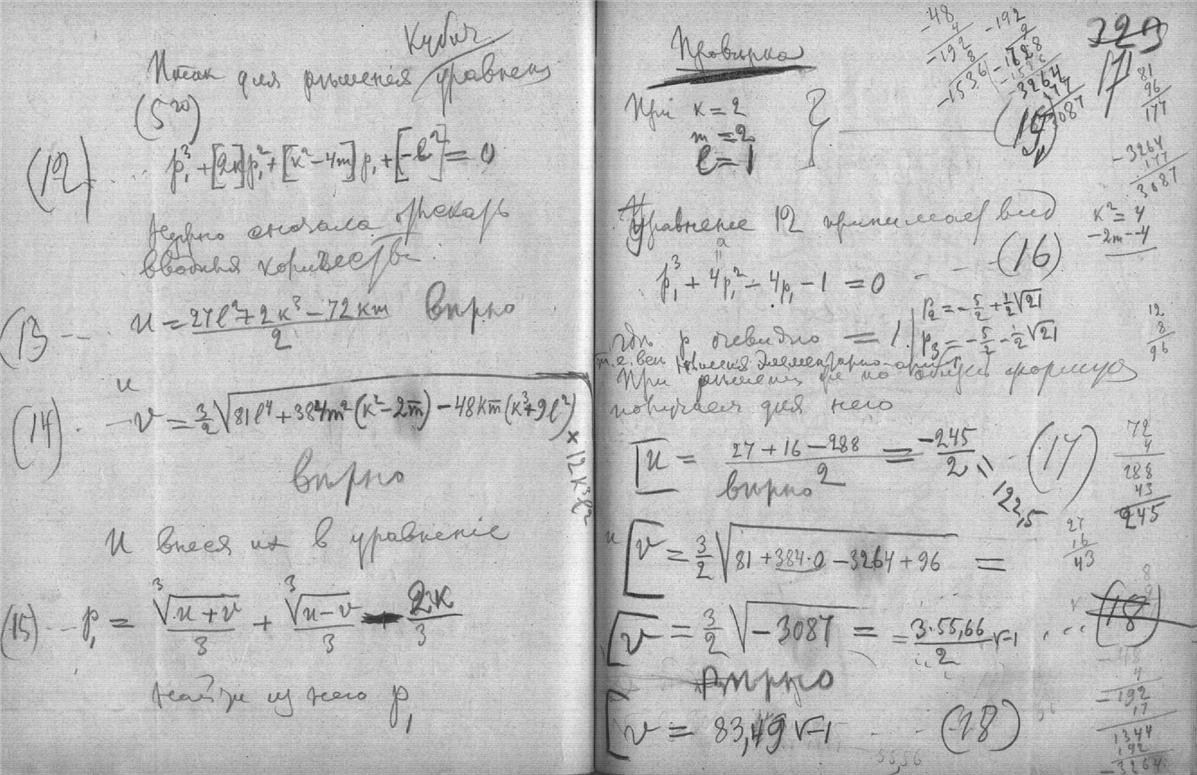 Итак для решения уравнения
Кубич
(520)
(12) .. p₁³ + [2к]p₁² + [к² − 4m] p₁ + [−l²] = 0
Нужно сначала отыскать
вводныя количества
(13 -- u = 27l² + 2к³ − 72 кm / 2 вѣрно
и
(14) . v = 3/2 √81l⁴ + 384m² (к² − 2m) − 48кm (к³ + 9l²)
× 12к³l²
вѣрно
И внеся их в уравненіе
(15) -- p₁ = ³√u + v / 3 + ³√u − v / 3 − 2к / 3
найти из него p₁
Провѣрка
323
17
При к = 2
m = 2
l = 1
(15)
Уравнение 12 принимает вид
p₁³ + 4p₁² − 4p₁ − 1 = 0 - - - (16)
где p очевидно = 1.
p₂ = −5/2 + 1/2 √21
p₃ = −5/2 − 1/2 √21
При рѣшении же по общей формулѣ
получаем для него
u = 27 + 16 − 288 / 2 = −245 / 2 - (17)
122,5
вѣрно
и
v = 3/2 √81 + 384·0 − 3264 + 96 =
v = 3/2 √−3087 = = 3·55,66 / 2 √−1 . ... (18)
Вѣрно
v = 83,49 √−1 - - (18)
55,56
−48
4
−192
8
−1536
−192
9
−1728
−1536
3264
177
3087
81
96
177
−3264
177
3087
к² = 4
−2m = −4
12
8
96
72
4
288
43
245
27
16
43
−48
4
−192
17
1344
192
−3264